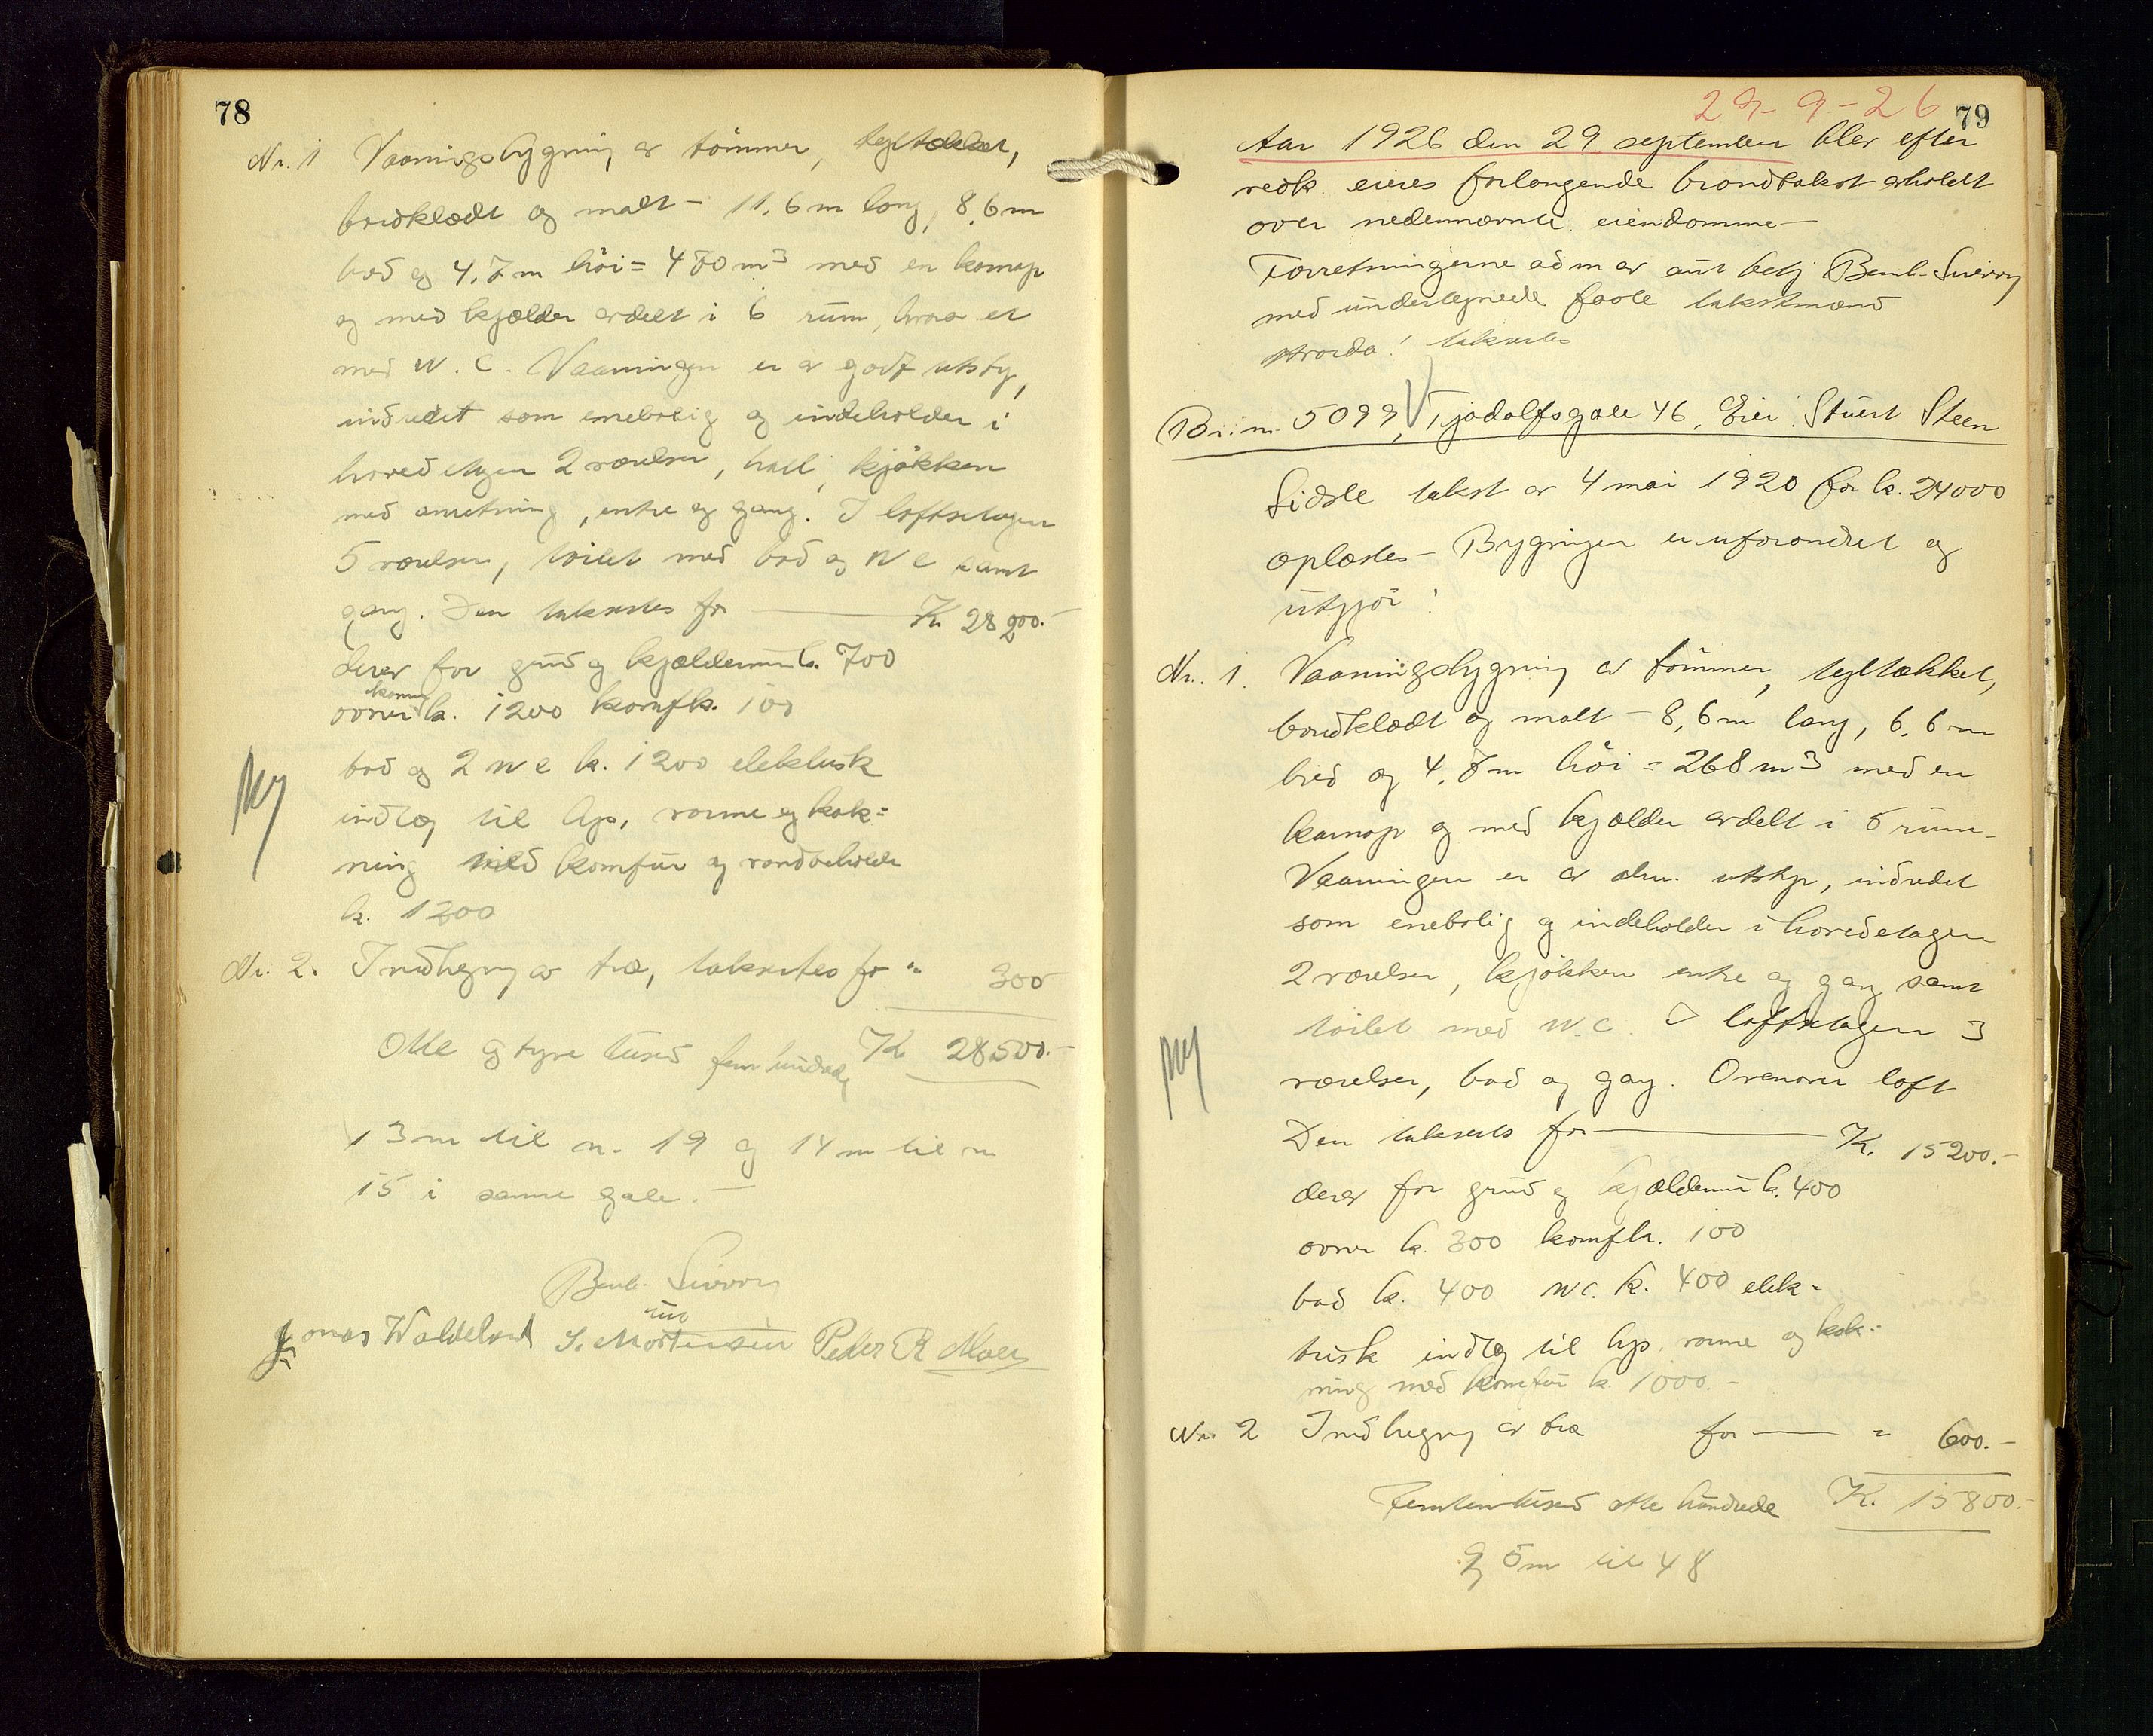 78
Nr. 1 Vaaningsbygning av tömmer, tegltækket,
bordklædt og malt - 11,6 m lang, 8,6 m
bred og 4,7 m höi = 470 m3 med en karnap
og med kjælder avdelt i 6 rum, hvorav et
med W.C. Vaaningen er av godt utstyr,
indredet som enebolig og indeholder i
hovedetagen 2 værelser, hall, kjökken
med anretning, entre og gang. I loftsetagen
5 værelser, toilet med bad og WC samt
gang. Den takseres for — Kr. 28200.-
derav for grund og kjældermur k. 700
ovner k. 1200 komf k. 100
bad og 2 WC k. 1200 elektrisk
indlæg til lys, varme og kok=
ning med komfur og vandbeholder
k. 1200
Ny
Nr. 2. Indhegning av træ, takseres for " 300
Otte og tyve tusend fem hundrede K 28500.-
13 m til nr. 19 og 14 m til nr
15 i samme gate. -
Bernh.
Jonas Waldeland S. Mortensen Peder R.
29-9-26
79
Aar 1926 den 29 september blev efter
vedk. eieres forlangende brandtakst avholdt
over nedennævnte eiendomme -
Forretningerne adm av aut. betj Bernh.
med undertegnede faste takstmænd
Hvorda! takseres
Br. nr. 5099, Tjodolfsgate 46, Eier: Stuert Steen
Sidste takst av 4 mai 1920 for k. 24000
oplæstes - Bygningen er uforandret og
utgjör:
Nr. 1. Vaaningsbygning av tömmer, tegltækket,
bordklædt og malt - 8,6 m lang, 6,6 m
bred og 4,7 m höi = 268 m3 med en
karnap og med kjælder avdelt i 5 rum -
Vaaningen er av alm. utstyr, indredet
som enebolig og indeholder i hovedetagen
2 værelser, kjökken entre og gang samt
toilet med W.C. I loftsetagen 3
værelser, bad og gang. Ovenover loft
Ny
Den takseres for — K. 15200.-
derav for grund og kjældermur k. 400
ovner k. 300 komf k. 100
bad k. 400 WC. k. 400 elek=
trisk indlæg til lys, varme og kok=
ning med komfur k. 1000.-
Nr. 2 Indhegning av træ for — " 600.-
Femtentusend otte hundrede K. 15800.-
5 m til 48